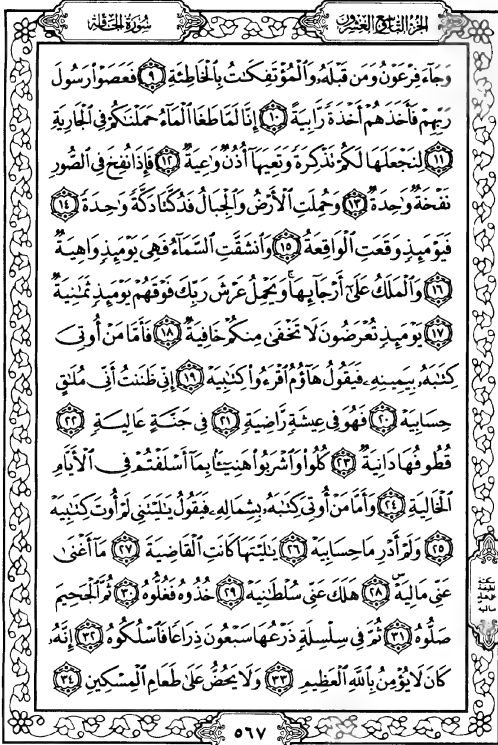 سُورَةُ الحَاقَّة
الجُزْءُ التَّاسِعُ وَالعِشْرُونَ
وَجَآءَ فِرْعَوْنُ وَمَن قَبْلَهُۥ وَٱلْمُؤْتَفِكَٰتُ بِٱلْخَاطِئَةِ ٩ فَعَصَوْا۟ رَسُولَ
رَبِّهِمْ فَأَخَذَهُمْ أَخْذَةً رَّابِيَةً ١٠ إِنَّا لَمَّا طَغَا ٱلْمَآءُ حَمَلْنَٰكُمْ فِى ٱلْجَارِيَةِ
١١ لِنَجْعَلَهَا لَكُمْ تَذْكِرَةً وَتَعِيَهَآ أُذُنٌ وَٰعِيَةٌ ١٢ فَإِذَا نُفِخَ فِى ٱلصُّورِ
نَفْخَةٌ وَٰحِدَةٌ ١٣ وَحُمِلَتِ ٱلْأَرْضُ وَٱلْجِبَالُ فَدُكَّتَا دَكَّةً وَٰحِدَةً ١٤
فَيَوْمَئِذٍ وَقَعَتِ ٱلْوَاقِعَةُ ١٥ وَٱنشَقَّتِ ٱلسَّمَآءُ فَهِىَ يَوْمَئِذٍ وَاهِيَةٌ
١٦ وَٱلْمَلَكُ عَلَىٰٓ أَرْجَآئِهَا ۚ وَيَحْمِلُ عَرْشَ رَبِّكَ فَوْقَهُمْ يَوْمَئِذٍ ثَمَٰنِيَةٌ
١٧ يَوْمَئِذٍ تُعْرَضُونَ لَا تَخْفَىٰ مِنكُمْ خَافِيَةٌ ١٨ فَأَمَّا مَنْ أُوتِىَ
كِتَٰبَهُۥ بِيَمِينِهِۦ فَيَقُولُ هَآؤُمُ ٱقْرَءُوا۟ كِتَٰبِيَهْ ١٩ إِنِّى ظَنَنتُ أَنِّى مُلَٰقٍ
حِسَابِيَهْ ٢٠ فَهُوَ فِى عِيشَةٍ رَّاضِيَةٍ ٢١ فِى جَنَّةٍ عَالِيَةٍ ٢٢
قُطُوفُهَا دَانِيَةٌ ٢٣ كُلُوا۟ وَٱشْرَبُوا۟ هَنِيٓـًٔۢا بِمَآ أَسْلَفْتُمْ فِى ٱلْأَيَّامِ
ٱلْخَالِيَةِ ٢٤ وَأَمَّا مَنْ أُوتِىَ كِتَٰبَهُۥ بِشِمَالِهِۦ فَيَقُولُ يَٰلَيْتَنِى لَمْ أُوتَ كِتَٰبِيَهْ
٢٥ وَلَمْ أَدْرِ مَا حِسَابِيَهْ ٢٦ يَٰلَيْتَهَا كَانَتِ ٱلْقَاضِيَةَ ٢٧ مَآ أَغْنَىٰ
عَنِّى مَالِيَهْ ۜ ٢٨ هَلَكَ عَنِّى سُلْطَٰنِيَهْ ٢٩ خُذُوهُ فَغُلُّوهُ ٣٠ ثُمَّ ٱلْجَحِيمَ
صَلُّوهُ ٣١ ثُمَّ فِى سِلْسِلَةٍ ذَرْعُهَا سَبْعُونَ ذِرَاعًا فَٱسْلُكُوهُ ٣٢ إِنَّهُۥ
كَانَ لَا يُؤْمِنُ بِٱللَّهِ ٱلْعَظِيمِ ٣٣ وَلَا يَحُضُّ عَلَىٰ طَعَامِ ٱلْمِسْكِينِ ٣٤
٥٦٧